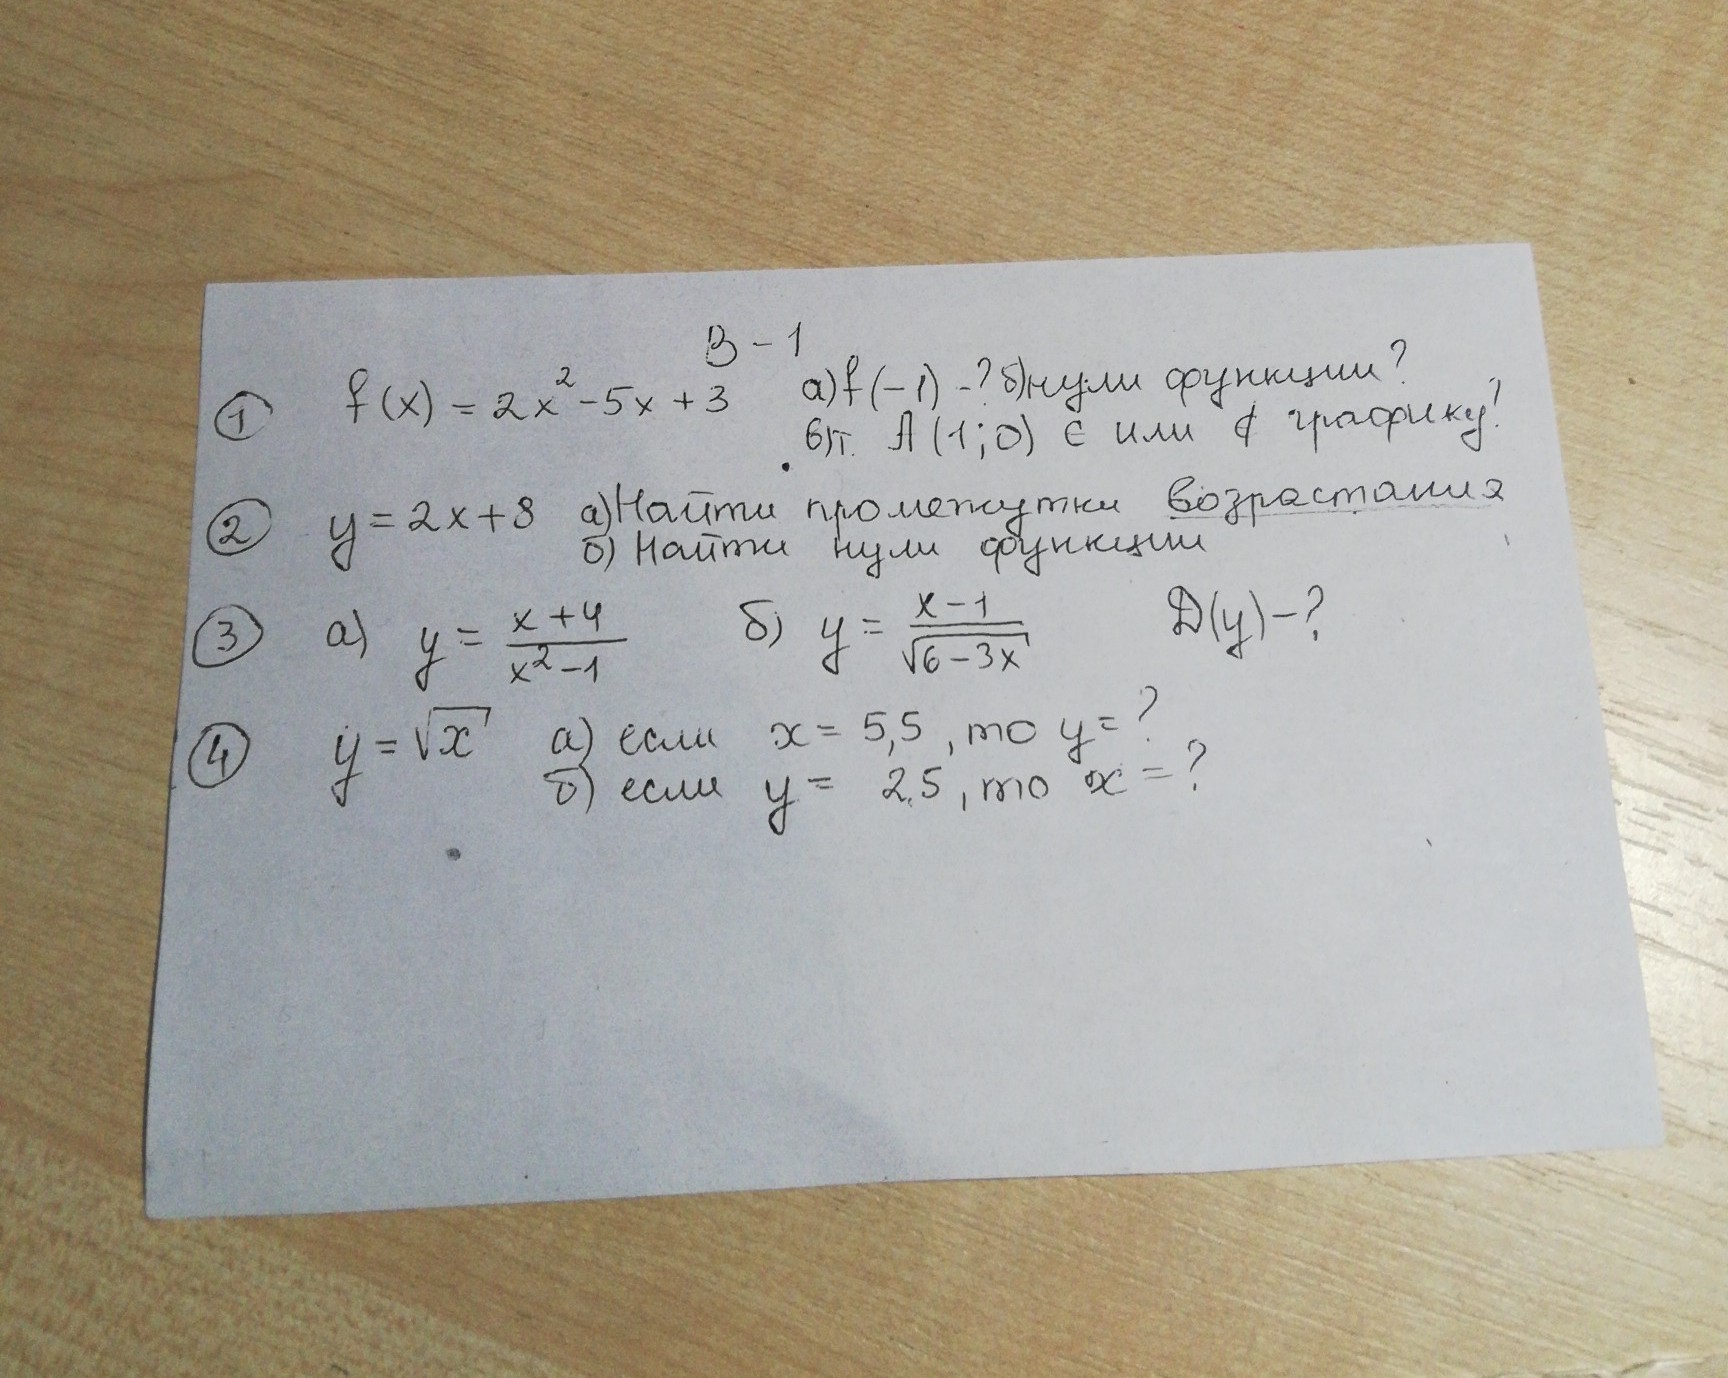 В - 1
① f(x) = 2x² - 5x + 3 а) f(-1) - ? б) нули функции?
в) т. А(1; 0) ∈ или ∉ графику?
② y = 2x + 8 а) Найти промежутки возрастания
б) Найти нули функции
③ а) y = (x + 4)/(x² - 1) б) y = (x - 1)/√(6 - 3x) D(y) - ?
④ y = √x а) если x = 5,5, то y = ?
б) если y = 2,5, то x = ?